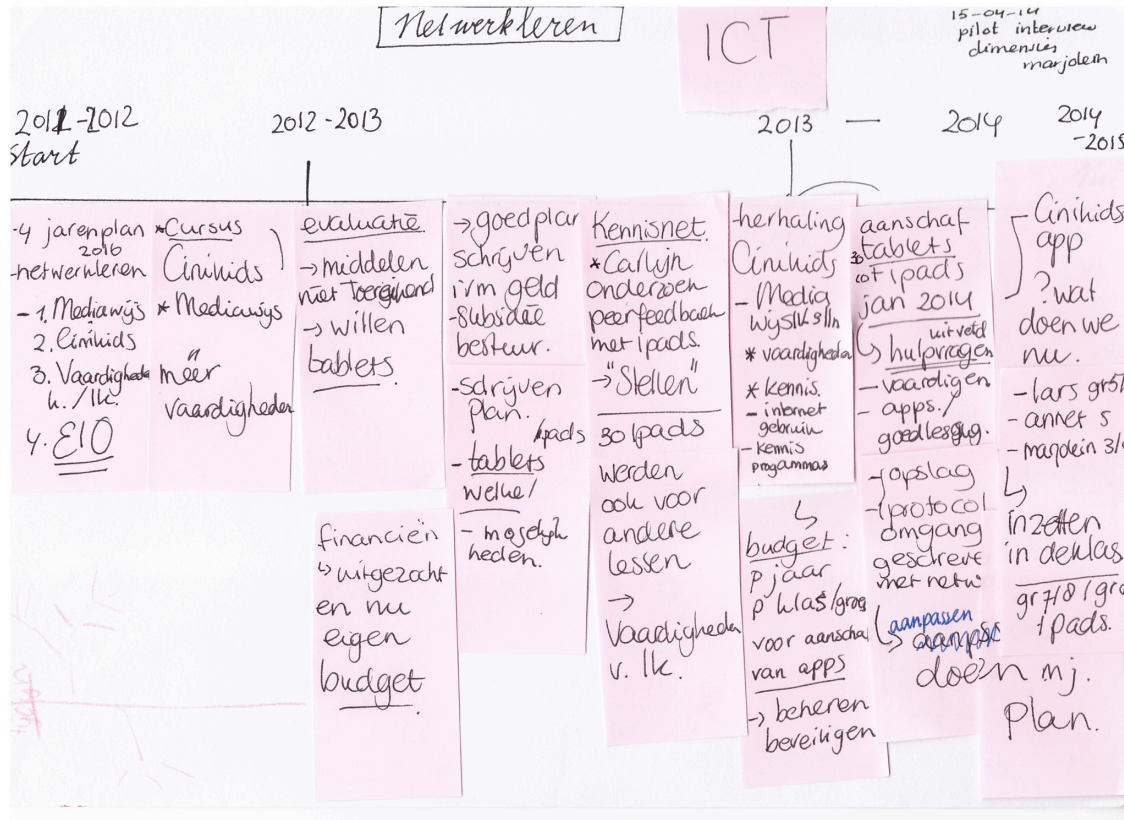 Netwerkleren
ICT
15-04-14
pilot interview
dimensies
marjolein
2011-2012
Start
2012-2013
2013 — 2014
2014
-2015
-4 jarenplan
2016
-netwerkleren
- 1. Mediawijs
2. Cinikids
3. Vaardighede
k./lk.
4. EIO
*Cursus
Cinikids
* Mediawijs
"
méér
vaardigheden
evaluatie
→ middelen
niet toereikend
→ willen
tablets.
financiën
↳ uitgezocht
en nu
eigen
budget.
→ goed plan
schrijven
ivm geld
-subsidie
bestuur.
-schrijven
plan.
/ipads
- tablets
welke/
- mogelijk
heden.
Kennisnet.
* Carlijn
onderzoek
peerfeedback
met ipads.
→ "Stellen"
30 Ipads
werden
ook voor
andere
lessen
→
Vaardigheden
v. lk.
-herhaling
Cinikids
- Media
wijs lk s lln
* vaardigheden
* kennis.
- internet
gebruik
- kennis
progammas
↳
budget:
p jaar
p klas/groep
voor aanschaf
van apps
→ beheren
beveiligen
aanschaf
tablets
of ipads
jan 2014
↳ hulpvragen
- vaardigen
- apps./
- opslag
- protocol
omgang
geschreve
met netw
↳ aanpassen
doen mj.
Plan.
Cinikids
app
? wat
doen we
nu.
- lars gr5
- annet s
- marjolein 3/
↳
inzetten
in de klas
gr 7/8 / gr
ipads.